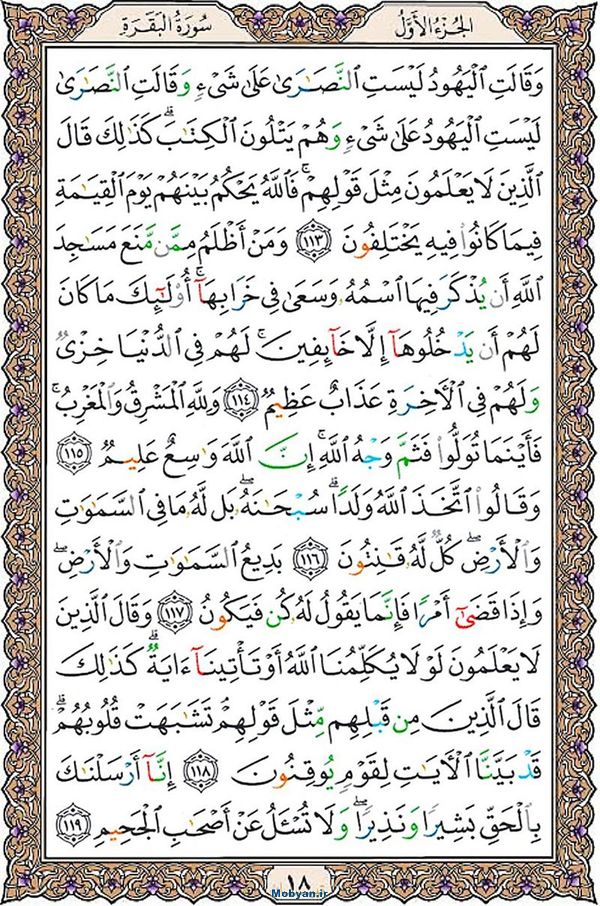 الجُزءُ الأَوَّلُ
سُورَةُ البَقَرَةِ
وَقَالَتِ ٱلْيَهُودُ لَيْسَتِ ٱلنَّصَـٰرَىٰ عَلَىٰ شَىْءٍ وَقَالَتِ ٱلنَّصَـٰرَىٰ
لَيْسَتِ ٱلْيَهُودُ عَلَىٰ شَىْءٍ وَهُمْ يَتْلُونَ ٱلْكِتَـٰبَ ۗ كَذَٰلِكَ قَالَ
ٱلَّذِينَ لَا يَعْلَمُونَ مِثْلَ قَوْلِهِمْ ۚ فَٱللَّهُ يَحْكُمُ بَيْنَهُمْ يَوْمَ ٱلْقِيَـٰمَةِ
فِيمَا كَانُوا۟ فِيهِ يَخْتَلِفُونَ ١١٣ وَمَنْ أَظْلَمُ مِمَّن مَّنَعَ مَسَـٰجِدَ
ٱللَّهِ أَن يُذْكَرَ فِيهَا ٱسْمُهُۥ وَسَعَىٰ فِى خَرَابِهَآ ۚ أُو۟لَـٰٓئِكَ مَا كَانَ
لَهُمْ أَن يَدْخُلُوهَآ إِلَّا خَآئِفِينَ ۚ لَهُمْ فِى ٱلدُّنْيَا خِزْىٌ
وَلَهُمْ فِى ٱلْـَٔاخِرَةِ عَذَابٌ عَظِيمٌ ١١٤ وَلِلَّهِ ٱلْمَشْرِقُ وَٱلْمَغْرِبُ ۚ
فَأَيْنَمَا تُوَلُّوا۟ فَثَمَّ وَجْهُ ٱللَّهِ ۚ إِنَّ ٱللَّهَ وَٰسِعٌ عَلِيمٌ ١١٥
وَقَالُوا۟ ٱتَّخَذَ ٱللَّهُ وَلَدًا ۗ سُبْحَـٰنَهُۥ ۖ بَل لَّهُۥ مَا فِى ٱلسَّمَـٰوَٰتِ
وَٱلْأَرْضِ ۖ كُلٌّ لَّهُۥ قَـٰنِتُونَ ١١٦ بَدِيعُ ٱلسَّمَـٰوَٰتِ وَٱلْأَرْضِ ۖ
وَإِذَا قَضَىٰٓ أَمْرًا فَإِنَّمَا يَقُولُ لَهُۥ كُن فَيَكُونُ ١١٧ وَقَالَ ٱلَّذِينَ
لَا يَعْلَمُونَ لَوْلَا يُكَلِّمُنَا ٱللَّهُ أَوْ تَأْتِينَآ ءَايَةٌ ۗ كَذَٰلِكَ
قَالَ ٱلَّذِينَ مِن قَبْلِهِم مِّثْلَ قَوْلِهِمْ ۘ تَشَـٰبَهَتْ قُلُوبُهُمْ ۗ
قَدْ بَيَّنَّا ٱلْـَٔايَـٰتِ لِقَوْمٍ يُوقِنُونَ ١١٨ إِنَّآ أَرْسَلْنَـٰكَ
بِٱلْحَقِّ بَشِيرًا وَنَذِيرًا ۖ وَلَا تُسْـَٔلُ عَنْ أَصْحَـٰبِ ٱلْجَحِيمِ ١١٩
١٨
Mobyan.ir